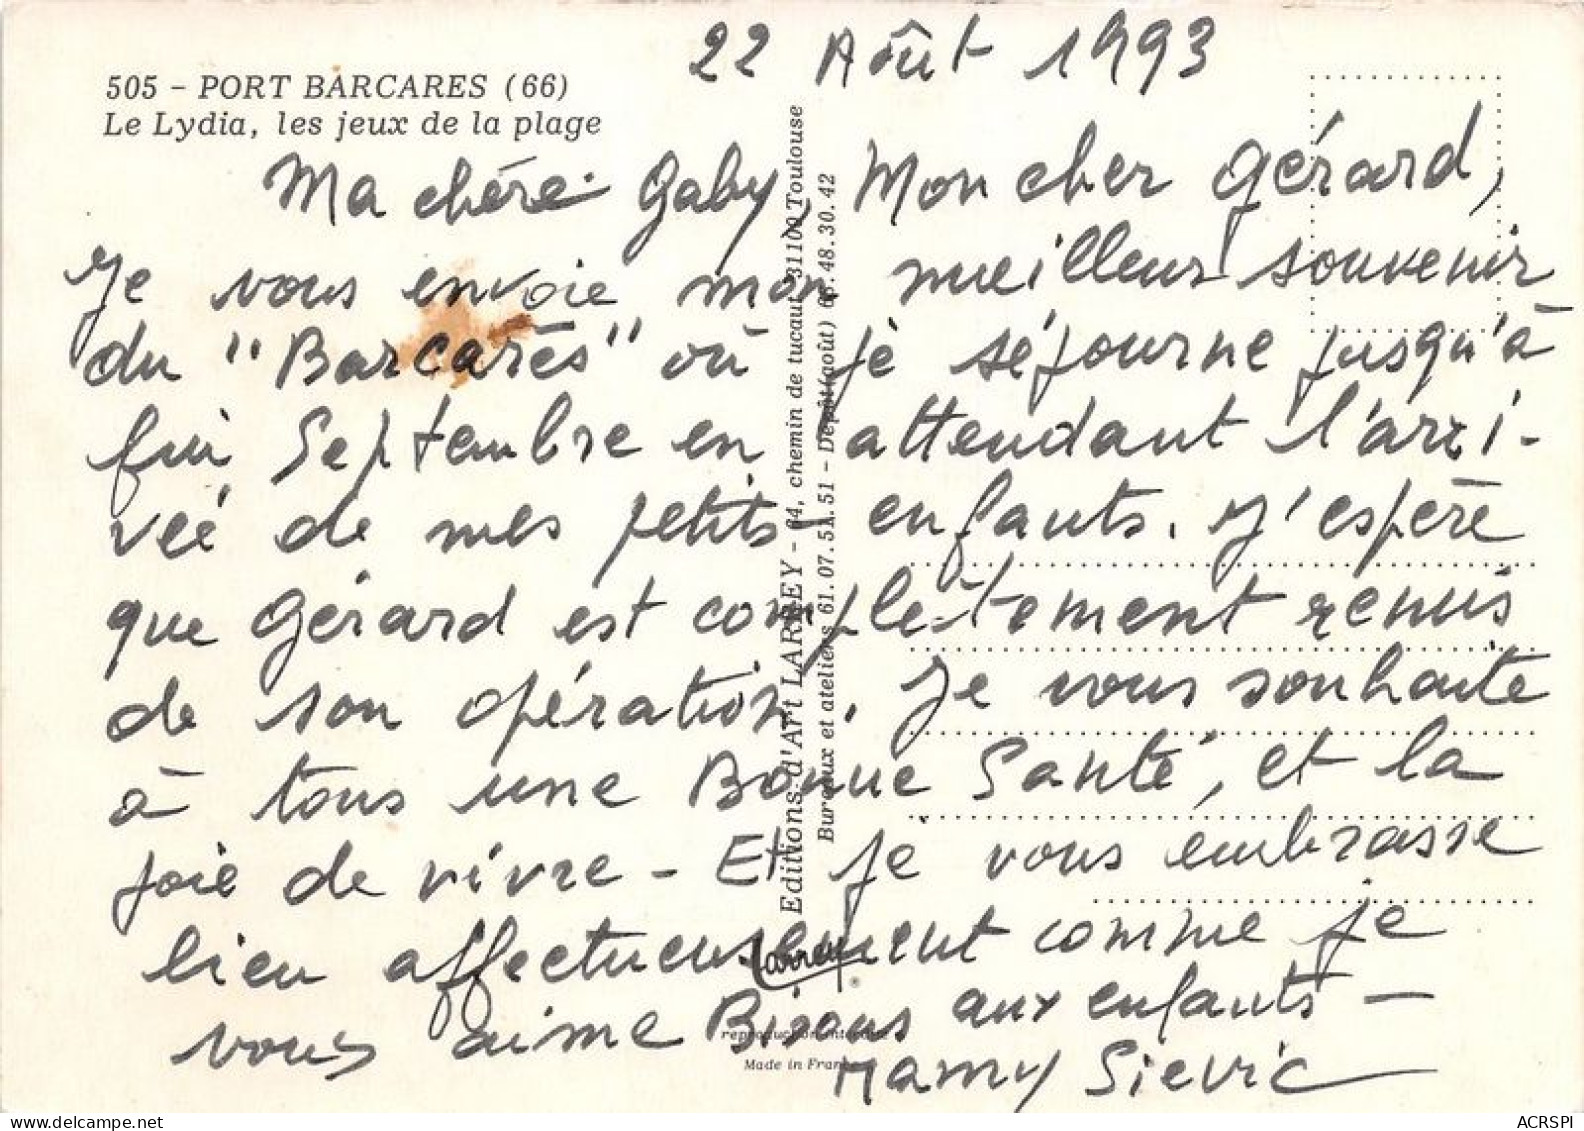 22 Août 1993
505 - PORT BARCARES (66)
Le Lydia, les jeux de la plage
Ma chère Gaby, Mon cher Gérard,
Je vous envoie mon meilleur souvenir
du "Barcarès" où je séjourne jusqu'à
fin Septembre en attendant l'arri-
vée de mes petits-enfants. J'espère
que Gérard est complètement remis
de son opération. Je vous souhaite
à tous une Bonne Santé, et la
joie de vivre - Et je vous embrasse
bien affectueusement comme je
vous aime Bisous aux enfants -
Mamy Sievic
Editions d'Art LARREY - 64, chemin de tucaut 31100 Toulouse
Bureaux et ateliers 61.07.51.51 - Dépôt(août) 68.48.30.42
Larrey
reproduction interdite
Made in France
ACRSPI